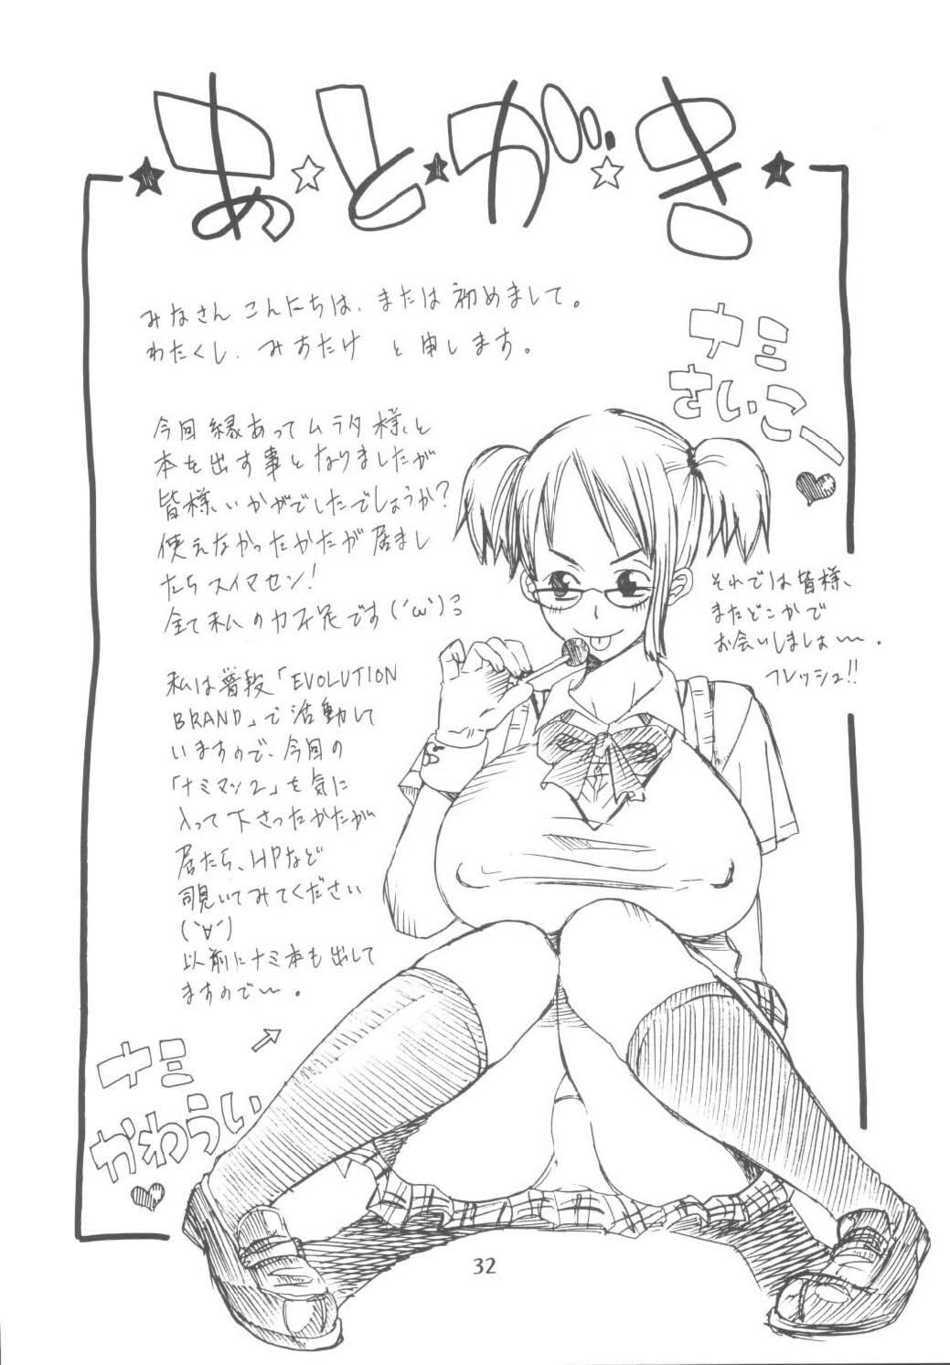 あとがき
みなさん こんにちは、または初めまして。
わたくし、みすたけ と申します。
ナミ
さいこー
今回縁あってムラタ様と
本を出す事となりましたが
皆様いかがでしたでしょうか?
使えなかったかたが居まし
たらスイマセン!
全て私の力不足です(´ω`)
私は普段「EVOLUTION
BRAND」で活動して
いますので、今回の
「ナミマン2」を気に
入って下さったかたが
居たら、HPなど
覗いてみてください
(´∀`)
以前にナミ本も出して
ますので〜。
それでは皆様、
またどこかで
お会いしましょ〜。
フレッシュ!!
ナミ
かわうい
32